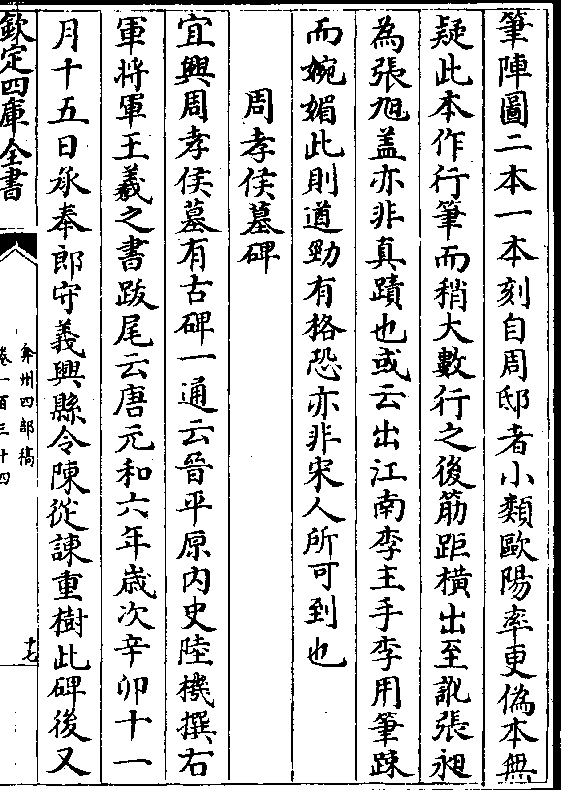 筆陣圖二本一本刻自周邸者小類歐陽率更偽本無
疑此本作行筆而稍大數行之後筋距橫出至訛張昶
為張旭盖亦非真蹟也或云出江南李主手李用筆踈
而婉媚此則遒勁有格恐亦非宋人所可到也
周孝侯墓碑
宜興周孝侯墓有古碑一通云晉平原内史陸機撰右
軍将軍王羲之書跋尾云唐元和六年歲次辛卯十一
月十五日承奉郎守義興縣令陳從諫重樹此碑後又
欽定四庫全書
弇州四部稿
卷一百三十四
十七